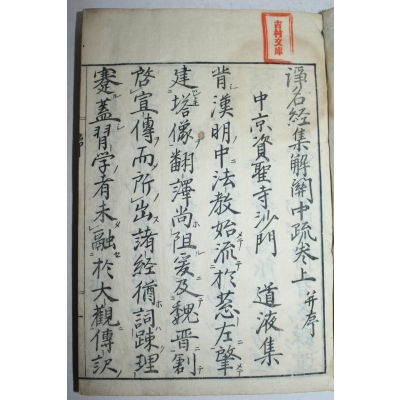 吉村文庫
淨名経集解関中疏巻上 并序
中京資聖寺沙門 道液集
昔漢明中法教始流於茲左肇
建塔像翻譯尚阻爰及魏晋創
啓宣傳而所出諸経猶詞踈理
蹇蓋習学者未融於大觀傳訳